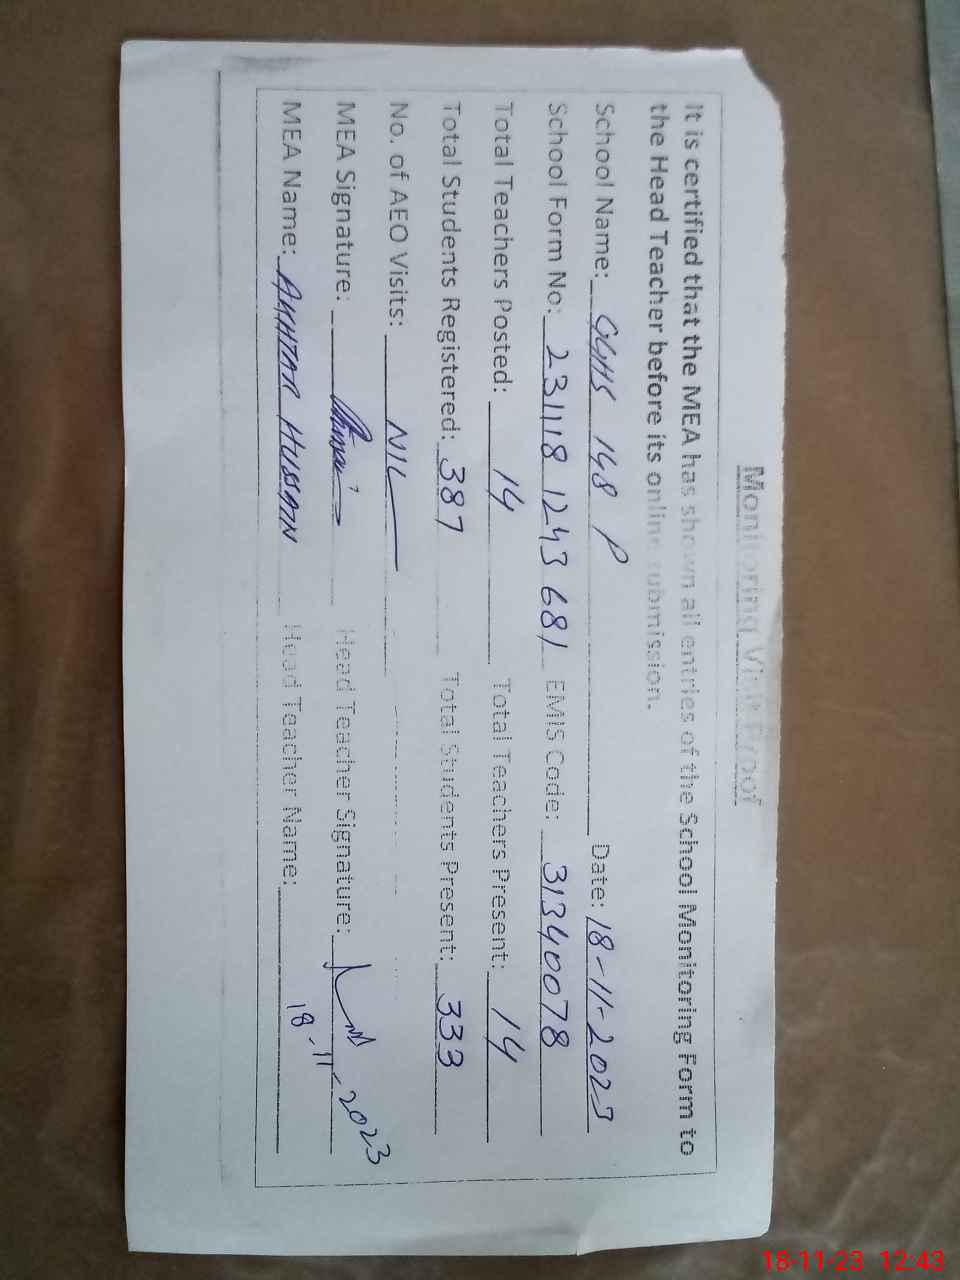 Monitoring Visit Proof
It is certified that the MEA has shown all entries of the School Monitoring Form to
the Head Teacher before its online submission.
School Name: GGHS 148 P Date: 18-11-2023
School Form No: 231118 1243 681 EMIS Code: 31340078
Total Teachers Posted: 14 Total Teachers Present: 14
Total Students Registered: 387 Total Students Present: 333
No. of AEO Visits: NIL
MEA Signature: Head Teacher Signature:
18-11-2023
MEA Name: AKHTAR HUSSAIN Head Teacher Name:
18-11-23 12:43